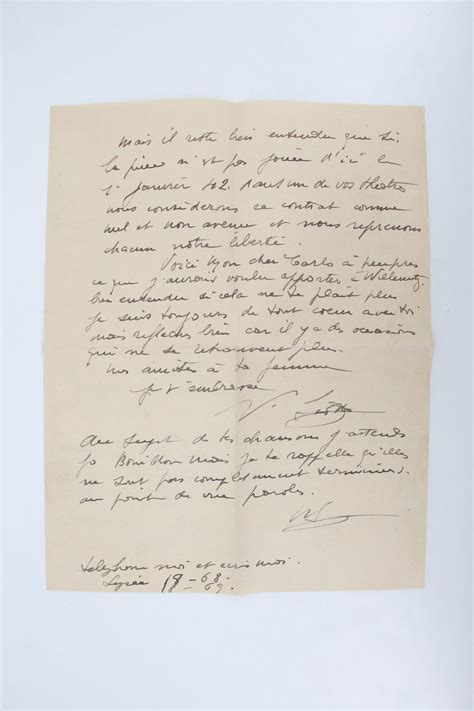 Mais il reste bien entendu que si
la pièce n'est pas jouée d'ici le
1er Janvier 42. dans un de vos théâtres
nous considérons ce contrat comme
nul et non avenue et nous reprenons
chacun notre liberté.
Voici mon cher Carlo à peu près
ce que j'aurais voulu apporter à
bien entendu si cela ne te plait plus
Je suis toujours de tout coeur avec toi
mais réfléchis bien car il y a des occasions
qui ne se retrouvent plus.
Nos amitiés à ta femme
Je t'embrasse
V.
Au sujet de tes chansons j'attends
Jo Bouillon mais je te rappelle qu'elles
ne sont pas complètement terminées.
au point de vue parole.
telephone moi et ecris moi.
Elysée 18-68-
18-69-